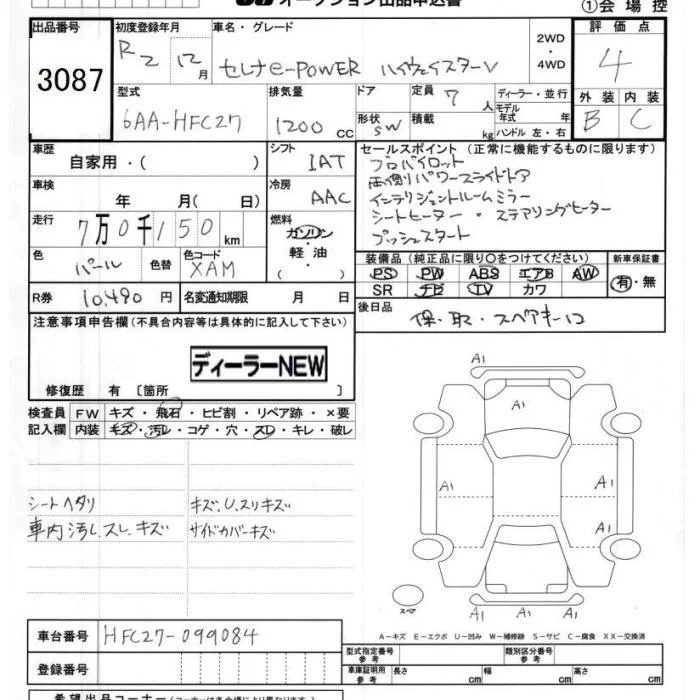 オークション出品申込書
①会場控
出品番号 3087
初度登録年月 R2 12月
車名・グレード セレナe-POWER ハイウェイスターV
2WD・4WD
評価点 4
外装 B 内装 C
型式 6AA-HFC27
排気量 1200 CC
ドア 形状 SW
定員 7 人
積載 kg
ディーラー・並行
モデル年式 年
ハンドル 左・右
車歴 自家用・( )
シフト IAT
冷房 AAC
車検 年 月( 日)
走行 7万0千150 km
燃料 ガソリン・軽油・( )
色 パール 色替 色コード XAM
R券 10,490円 名変通知期限 月 日
セールスポイント(正常に機能するものに限ります)
プロパイロット
両側パワースライドドア
インテリジェントルームミラー
シートヒーター・ステアリングヒーター
プッシュスタート
装備品(純正品に限り○をつけてください) 新車保証書
PS PW ABS エアB AW 有・無
SR ナビ TV カワ
後日品 保・取・スペアキーコ
注意事項申告欄(不具合内容等は具体的に記入して下さい)
ディーラーNEW
修復歴 有 〔箇所 〕
検査員記入欄
FW キズ・飛石・ヒビ割・リペア跡・×要
内装 キズ・汚レ・コゲ・穴・スレ・キレ・破レ
シートヘタリ キズ、U、スリキズ
車内汚レ、スレ、キズ サイドカバーキズ
A1
A1
A1 A1
A1
A1 A1 A1
スペア
A-キズ E-エクボ U-凹み W-補修跡 S-サビ C-腐食 XX-交換済
車台番号 HFC27-099084
登録番号
型式指定番号 参考 類別区分番号 参考
車庫証明用 参考 長さ cm 幅 cm 高さ cm
希望出品コーナー(コーナーは各会場により異なります)